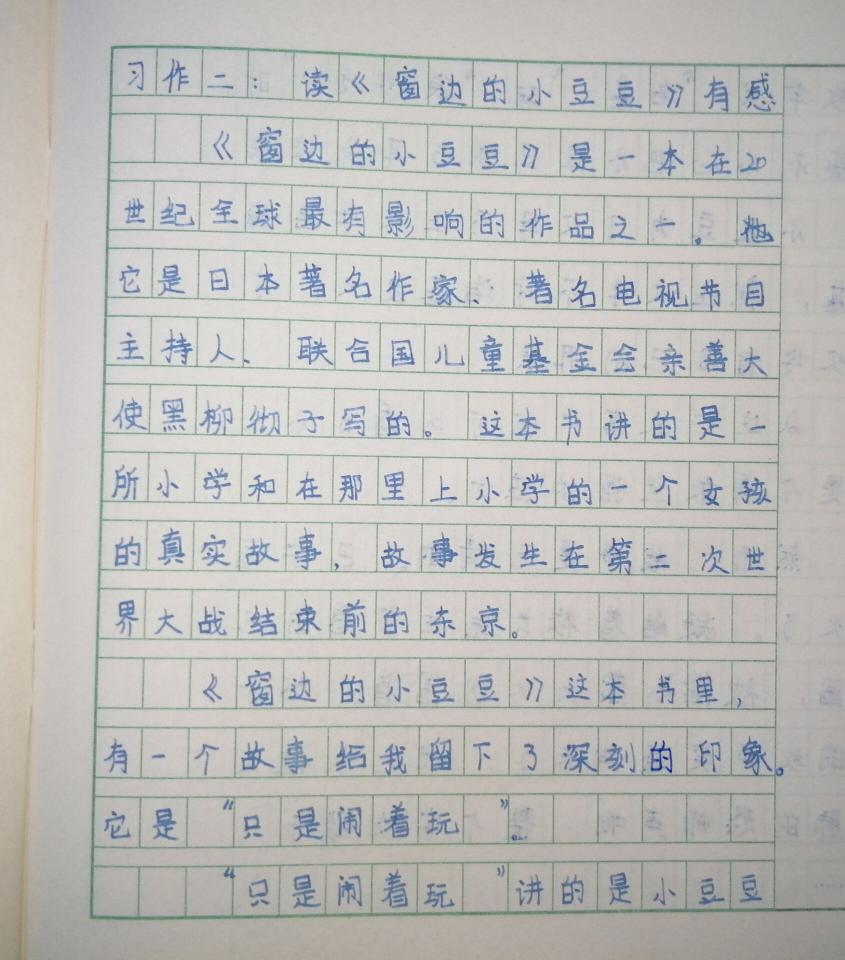 习作二：读《窗边的小豆豆》有感
《窗边的小豆豆》是一本在20
世纪全球最有影响的作品之一。他
它是日本著名作家、著名电视节目
主持人、联合国儿童基金会亲善大
使黑柳彻子写的。这本书讲的是一
所小学和在那里上小学的一个女孩
的真实故事，故事发生在第二次世
界大战结束前的东京。
《窗边的小豆豆》这本书里，
有一个故事给我留下了深刻的印象。
它是“只是闹着玩”。
“只是闹着玩”讲的是小豆豆